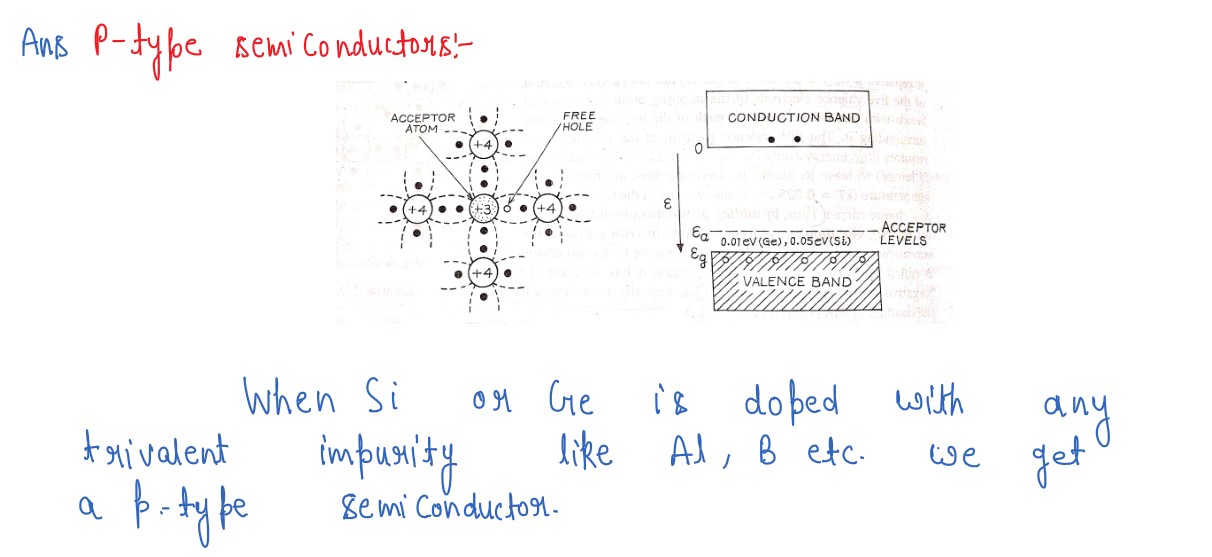 Ans P-type semiconductors:-
ACCEPTOR ATOM
FREE HOLE
+4
+4
+3
+4
+4
CONDUCTION BAND
0
ε
εa
ACCEPTOR LEVELS
0.01eV(Ge), 0.05eV(Si)
εg
VALENCE BAND
When Si or Ge is doped with any
trivalent impurity like Al, B etc. we get
a p-type semiconductor.